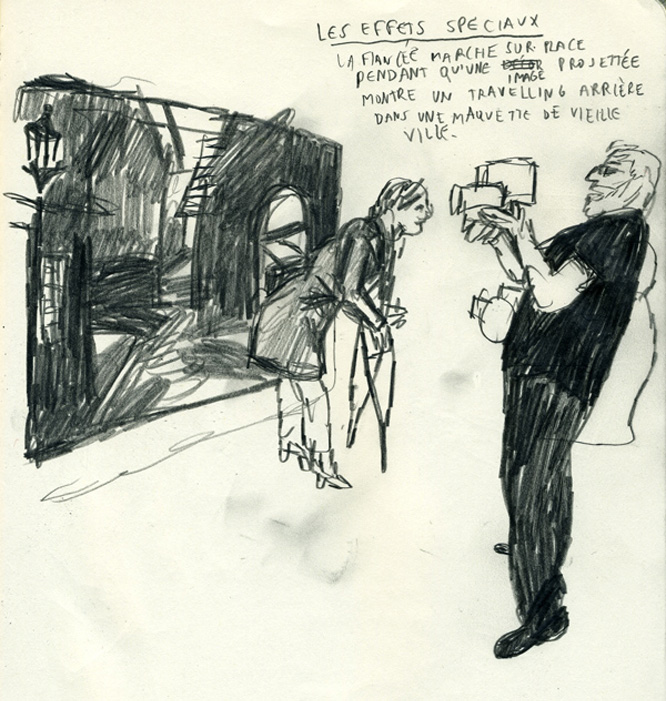 LES EFFETS SPECIAUX
LA FIANCÉE MARCHE SUR PLACE
PENDANT QU'UNE DÉCOR IMAGE PROJETTÉE
MONTRE UN TRAVELLING ARRIÈRE
DANS UNE MAQUETTE DE VIEILLE
VILLE.